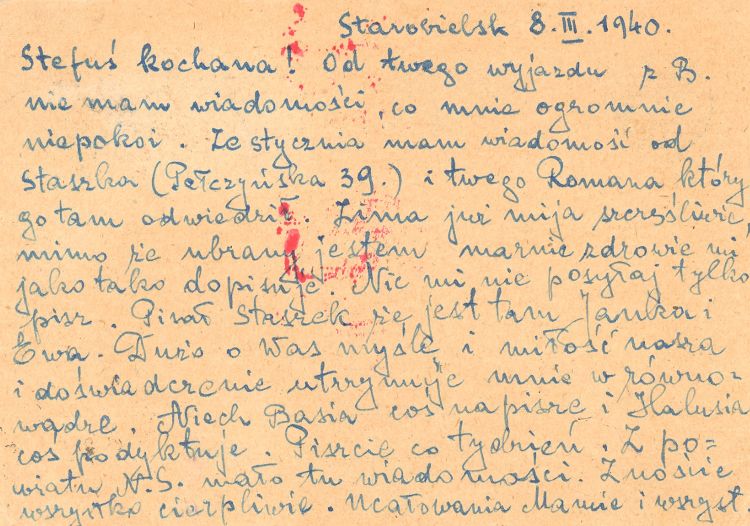 Starobielsk 8.III.1940.
Stefuś kochana! Od twego wyjazdu z B.
nie mam wiadomości, co mnie ogromnie
niepokoi. Ze stycznia mam wiadomość od
Staszka (Pełczyńska 39.) i twego Romana który
go tam odwiedził. Zima już mija szczęśliwie,
mimo że ubrany jestem marnie zdrowie mi
jako tako dopisuje. Nic mi nie posyłaj tylko
pisz. Pisał Staszek że jest tam Janka i
Ewa. Dużo o Was myślę i miłość nasza
i doświadczenie utrzymuje mnie w równo=
wadze. Niech Basia coś napisze i Halusia
coś podyktuje. Piszcie co tydzień. Z po=
wiatu N.S. mało tu wiadomości. Znoście
wszystko cierpliwie. Ucałowania Mamie i wszyst